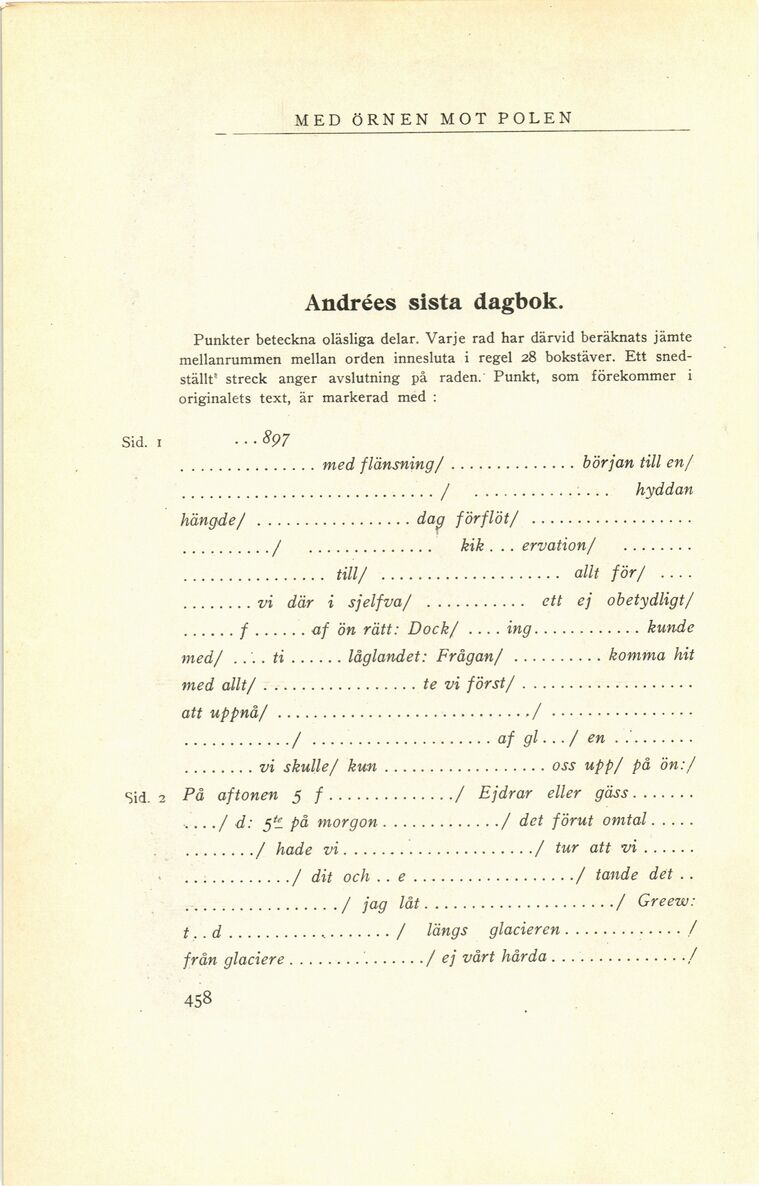 MED ÖRNEN MOT POLEN
Andrées sista dagbok.
Punkter beteckna oläsliga delar. Varje rad har därvid beräknats jämte
mellanrummen mellan orden innesluta i regel 28 bokstäver. Ett sned-
ställt streck anger avslutning på raden. Punkt, som förekommer i
originalets text, är markerad med :
Sid. 1 ...897
............... med flänsning/ .............. början till en/
............................ / ............... hyddan
hängde/ ................. dag förflöt/ ..................
........../ .............. kik... ervation/ ........
................ till/ .................... allt för/ ....
........vi där i sjelfva/ ........... ett ej obetydligt/
......f......af ön rätt: Dock/ ....ing............kunde
med/ .... ti ...... låglandet: Frågan/ .......... komma hit
med allt/ ................. te vi först/ ...................
att uppnå/ ............................/ ................
............/ .................... af gl.../ en .........
........vi skulle/ kun .................. oss upp/ på ön:/
Sid. 2 På aftonen 5 f............../ Ejdrar eller gäss.......
..../ d: 5te på morgon............./ det förut omtal.....
......../ hade vi...................../ tur att vi ......
............/ dit och .. e ................../ tande det ..
................./ jag låt...................../ Greew:
t..d .................. / längs glacieren............./
från glaciere .............../ ej vårt hårda .............../
458